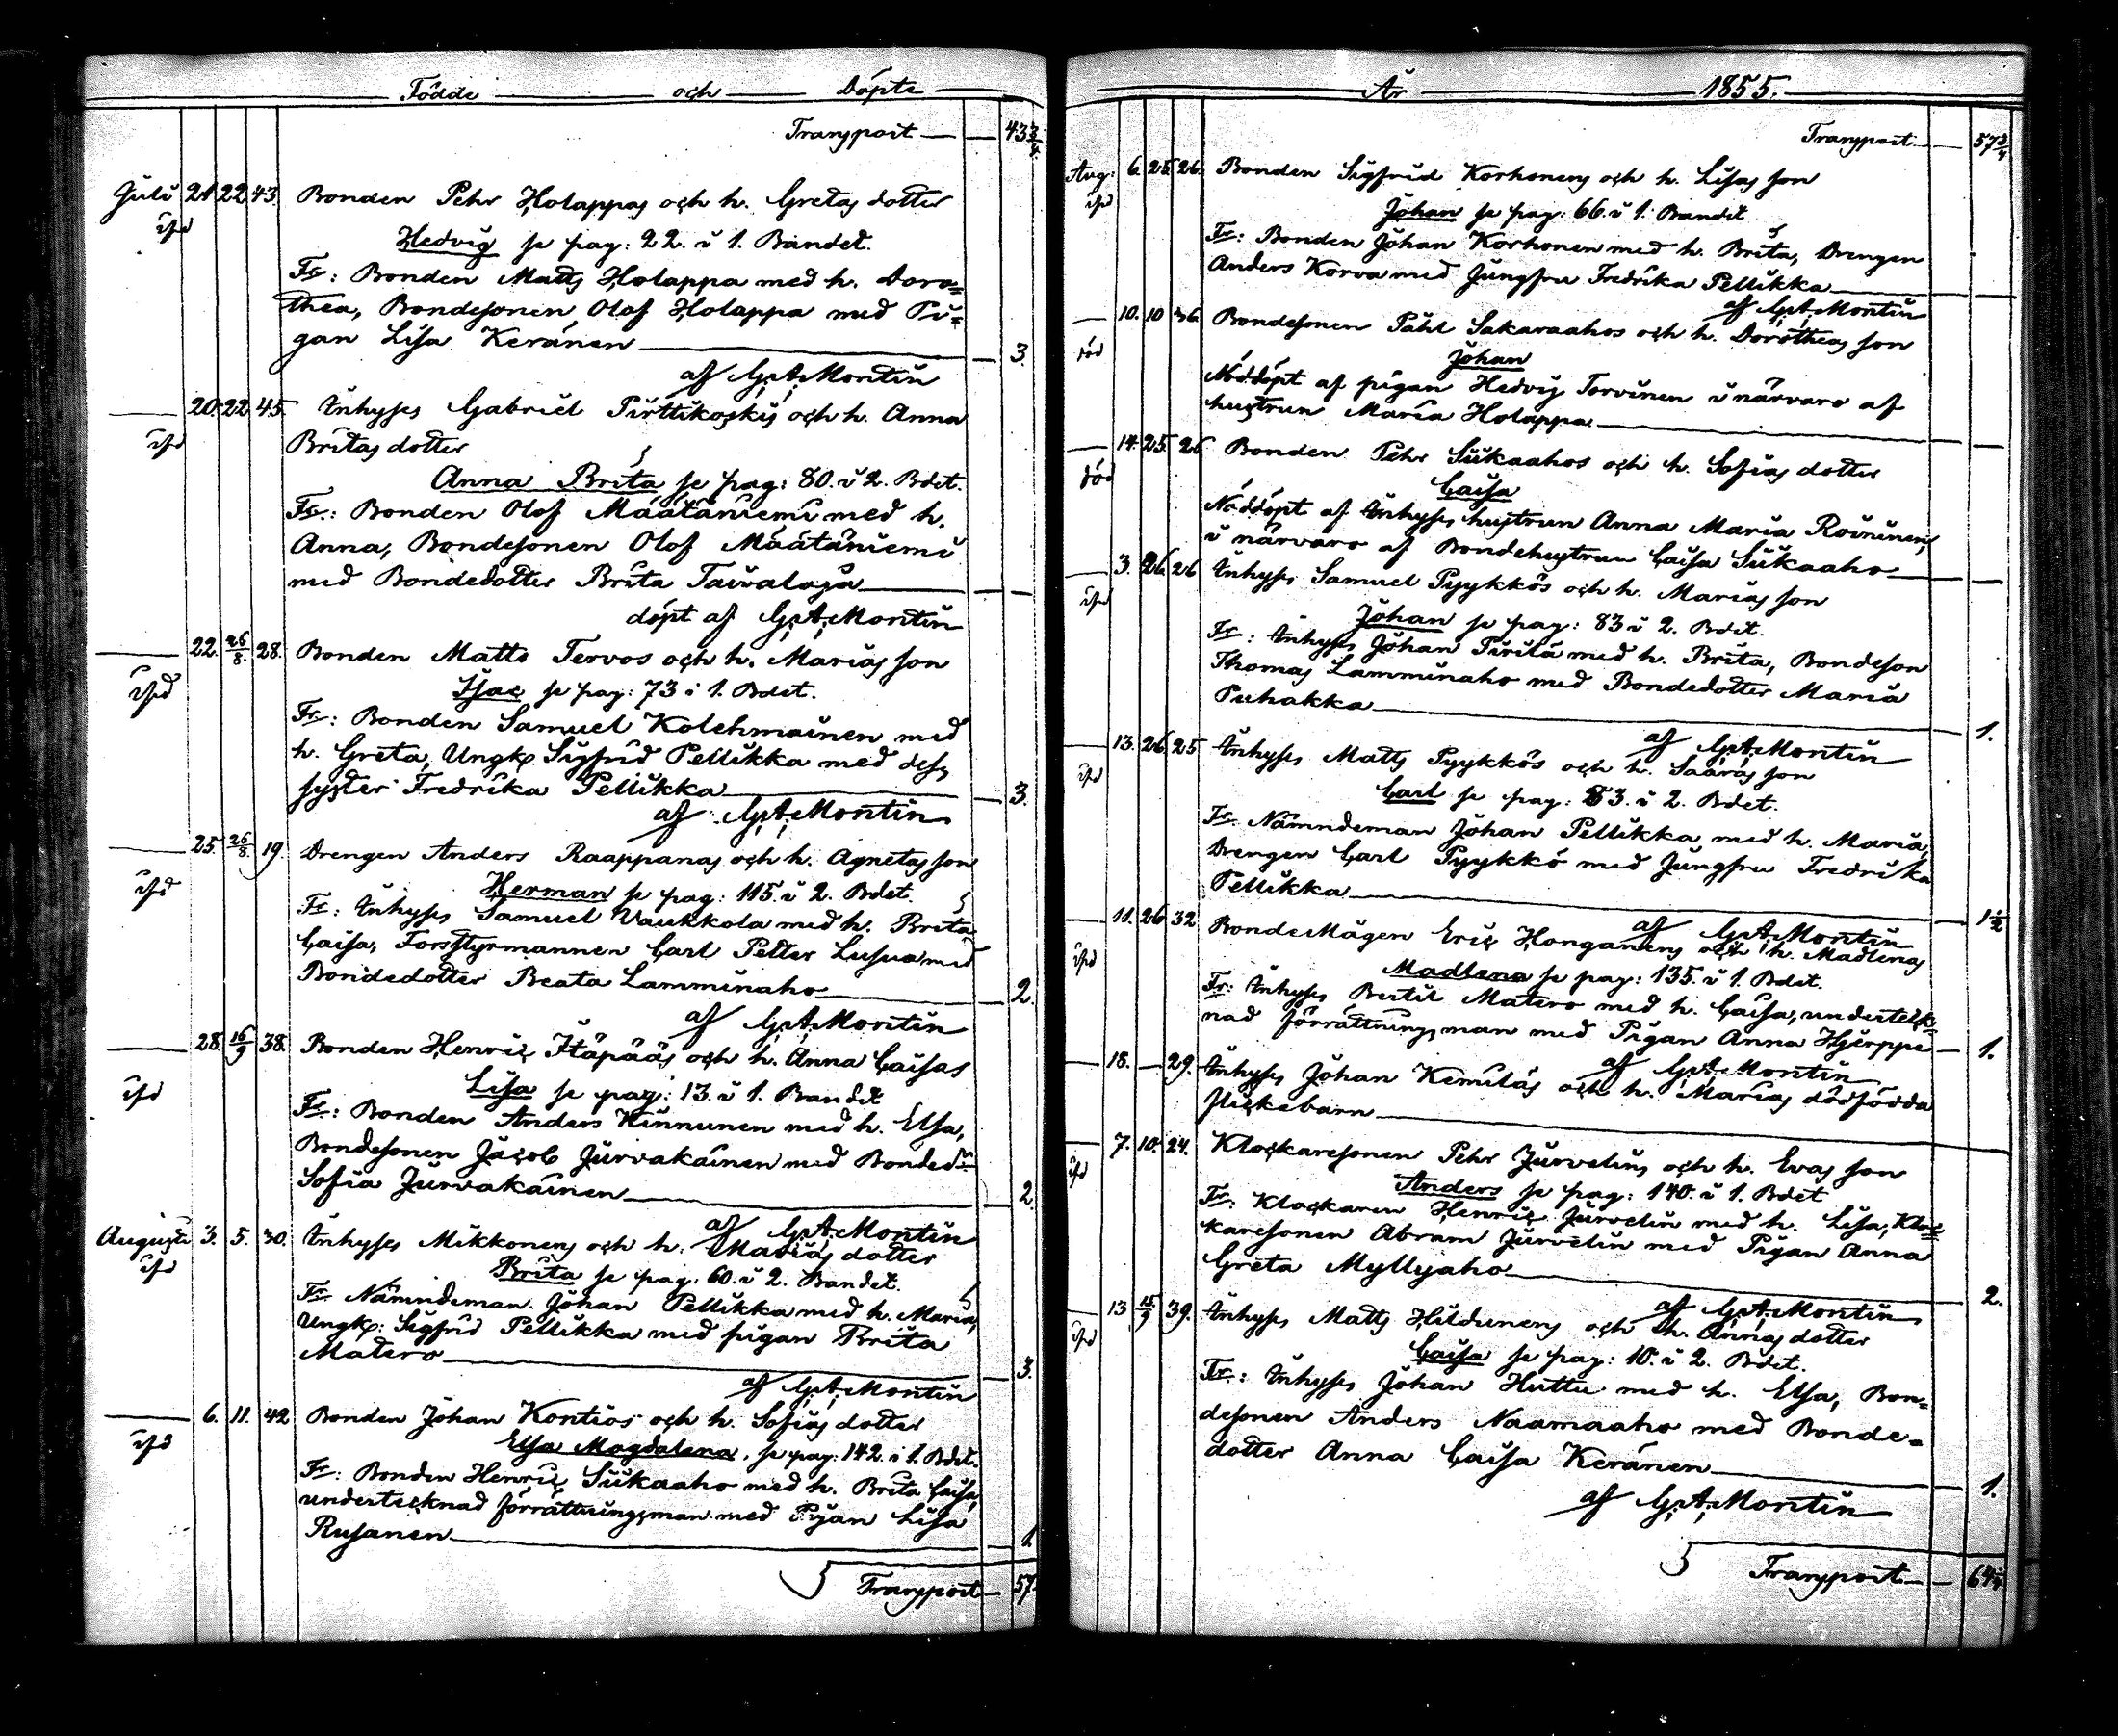 Födde och Döpte
Transport — 43 3/4.
Juli 21 22 43. Bonden Pehr Holappas och h. Gretas dotter
Hedvig se pag: 22. i 1. Bandet.
Fr: Bonden Matts Holappa med h. Doro=
thea, Bondesonen Olof Holappa med Pi=
gan Lisa Keränen — 3.
af G.A. Montin
20. 22 45. Inhyses Gabriel Pirttikoskis och h. Anna
Britas dotter
Anna Brita se pag: 80. i 2. Bdet.
Fr: Bonden Olof Määtäniemi med h.
Anna, Bondesonen Olof Määtäniemi
med Bondedotter Brita Taivaloja —
döpt af G.A. Montin
22. 26/8. 28. Bonden Matts Tervos och h. Marias son
Isac se pag: 73 i 1. Bdet.
Fr: Bonden Samuel Kolehmainen med
h. Greta, Ungk. Sigfrid Pellikka med dess
syster Fredrika Pellikka — 3.
af G.A. Montin
25. 26/8. 19. Drengen Anders Raappanas och h. Agnetas son
Herman se pag: 115. i 2. Bdet.
Fr: Inhyses Samuel Vaukkola med h. Brita
Caisa, Forsstyrmannen Carl Petter Lusua med
Bondedotter Beata Lamminaho — 2.
af G.A. Montin
28. 16/9 38. Bonden Henric Itäpääs och h. Anna Caisas
Lisa se pag: 13. i 1. Bandet
Fr: Bonden Anders Kinnunen med h. Elsa,
Bondesonen Jacob Jurvakainen med Bonded:
Sofia Jurvakainen — 2.
af G.A. Montin
Augusti 3. 5. 30. Inhyses Mikkonens och h. Marias dotter
Brita se pag: 60. i 2. Bandet.
Fr Nämndeman Johan Pellikka med h. Maria,
Ungk: Sigfrid Pellikka med pigan Brita
Matero — 3.
af G.A. Montin
6. 11. 42 Bonden Johan Kontios och h. Sofias dotter
Elsa Magdalena, se pag: 142. i 1. Bdet.
Fr: Bonden Henric Siikaaho med h. Brita Caisa,
undertecknad förrättningsman med Pigan Lisa
Rusanen — 1
Transport — 57.
År 1855.
Transport — 57 3/4
Aug: 6. 25. 26. Bonden Sigfrid Korhonens och h. Lisas son
Johan se pag: 66. i 1. Bandet
Fr: Bonden Johan Korhonen med h. Brita, Drengen
Anders Korva med Jungfru Fredrika Pellikka —
af G.A. Montin
10. 10 36. Bondesonen Påhl Sakaraahos och h. Dorotheas son
död Johan
Nöddöpt af pigan Hedvig Torvinen i närvaro af
hustrun Maria Holappa —
14. 25. 26 Bonden Pehr Siikaahos och h. Sofias dotter
död Caisa
Nöddöpt af Inhyses hustrun Anna Maria Roininen,
i närvaro af Bondehustrun Caisa Siikaaho —
3. 26. 26 Inhyses Samuel Pyykkös och h. Marias son
Johan se pag: 83 i 2. Bdet.
Fr: Inhyses Johan Pirilä med h. Brita, Bondeson
Thomas Lamminaho med Bondedotter Maria
Puhakka — 1.
af G.A. Montin
13. 26. 25 Inhyses Matts Pyykkös och h. Saaras son
Carl se pag: 83. i 2. Bdet.
Fr. Nämndeman Johan Pellikka med h. Maria,
Drengen Carl Pyykkö med Jungfru Fredrika
Pellikka — 1 1/2
af G.A. Montin
11. 26 32 Bondemågen Eric Honganens och h. Madlenas
Madlena se pag: 135. i 1. Bdet.
Fr: Inhyses Bertil Matero med h. Caisa, underteck=
nad förrättningsman med Pigan Anna Hjerppe — 1.
af G.A. Montin
18. — 29. Inhyses Johan Kemiläs och h. Marias dödfödda
flickebarn —
7. 10. 24. Klockaresonen Pehr Jurvelins och h. Evas son
Anders se pag: 140. i 1. Bdet
Fr. Klockaren Henric Jurvelin med h. Lisa, Kloc=
karesonen Abram Jurvelin med Pigan Anna
Greta Myllyaho — 2.
af G.A. Montin
13 15/9 39. Inhyses Matts Hildunens och h. Annas dotter
Caisa se pag: 10. i 2. Bdet.
Fr: Inhyses Johan Huttu med h. Elsa, Bon=
desonen Anders Naamaaho med Bonde=
dotter Anna Caisa Keränen — 1.
af G.A. Montin
Transport —